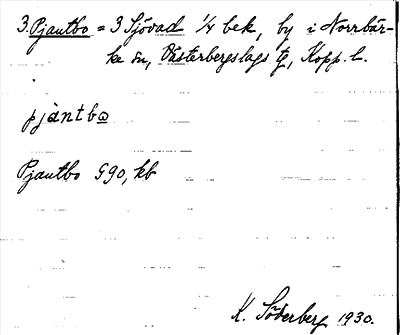 3. Pjantbo = 3 Sjövad 1/4 bek, by i Norrbär-
ke sn, Västerbergslags tg, Kopp. l.
pjàntbo
Pjantbo G90, kb
K. Söderberg 1930.